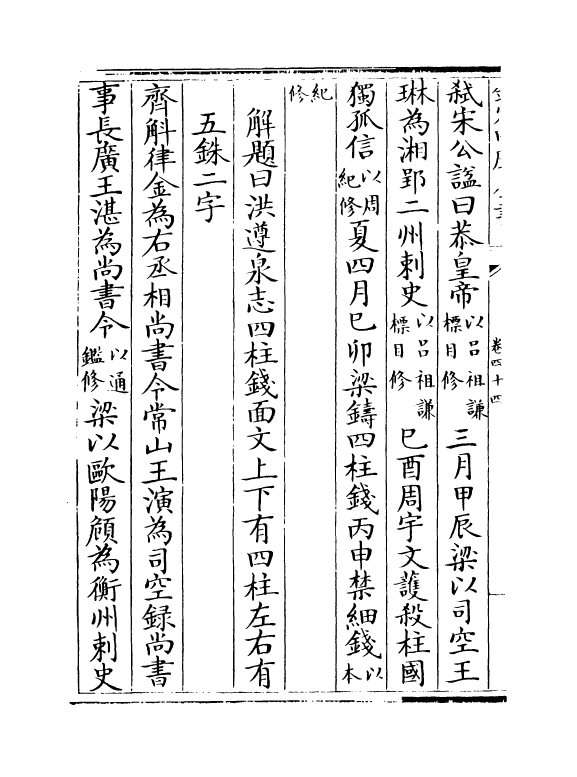 卷四十四
弒宋公諡曰恭皇帝以吕祖謙標目修三月甲辰梁以司空王
琳為湘郢二州刺史以吕祖謙標目修巳酉周宇文護殺柱國
獨孤信以周紀修夏四月巳卯梁鑄四柱錢丙申禁細錢以本
紀修
解題曰洪遵泉志四柱錢面文上下有四柱左右有
五銖二字
齊斛律金為右丞相尚書令常山王演為司空録尚書
事長廣王湛為尚書令以通鑑修梁以歐陽頠為衡州刺史